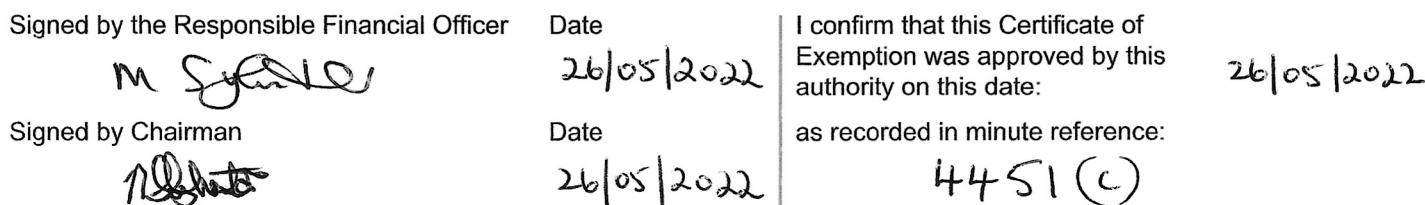 Signed by the Responsible Financial Officer
Date
M
26/05/2022
Signed by Chairman
Date
26/05/2022
I confirm that this Certificate of
Exemption was approved by this
authority on this date:
26/05/2022
as recorded in minute reference:
4451 (c)